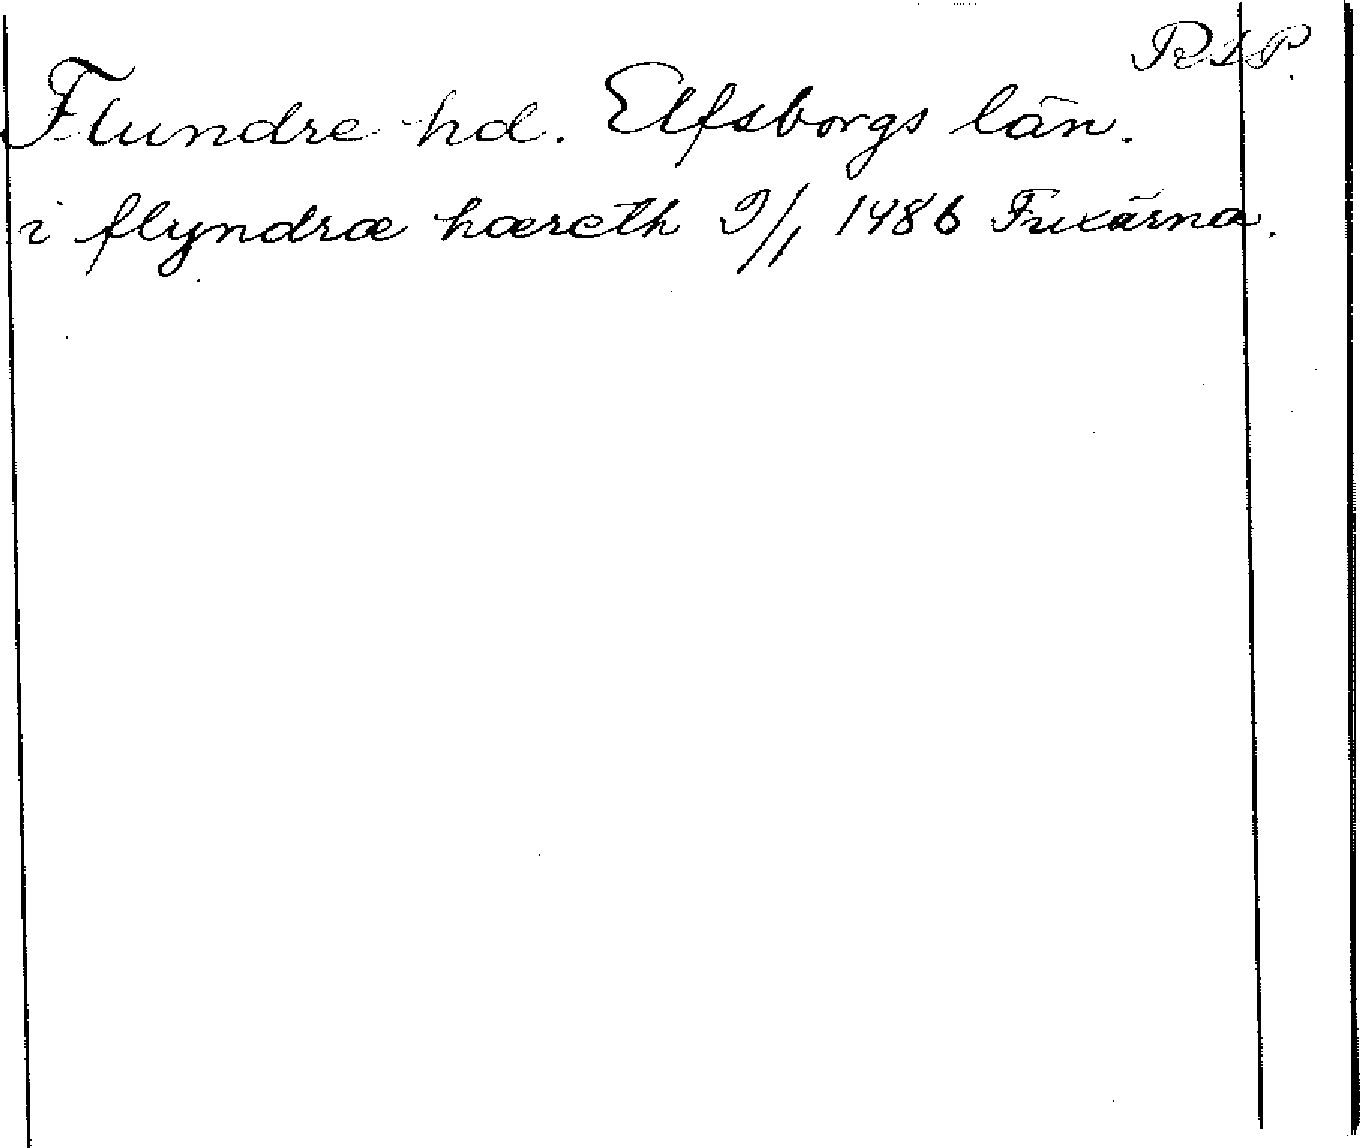 RSP.
Flundre hd. Elfsborgs län.
i flyndræ hæreth 9/1 1486 Fuxärna.